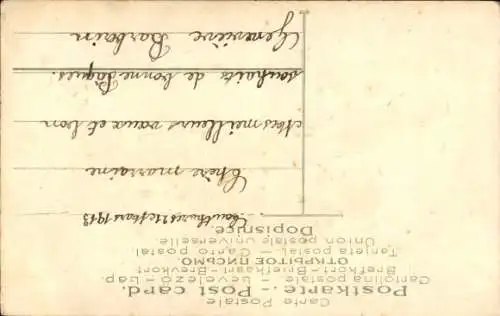 Carte Postale
Postkarte - Post card.
Cartolina postale - Levelező-Lap.
Brefkort - Briefkaart - Brevkort
ОТКРЫТОЕ ПИСЬМО.
Tarjeta postal - Carto postal
Union postale universelle
Dopisnice.
Mars 1913
Chère marraine
Mes meilleurs vœux et bon
souhaits de bonne Pâques.
Geneviève Barboin